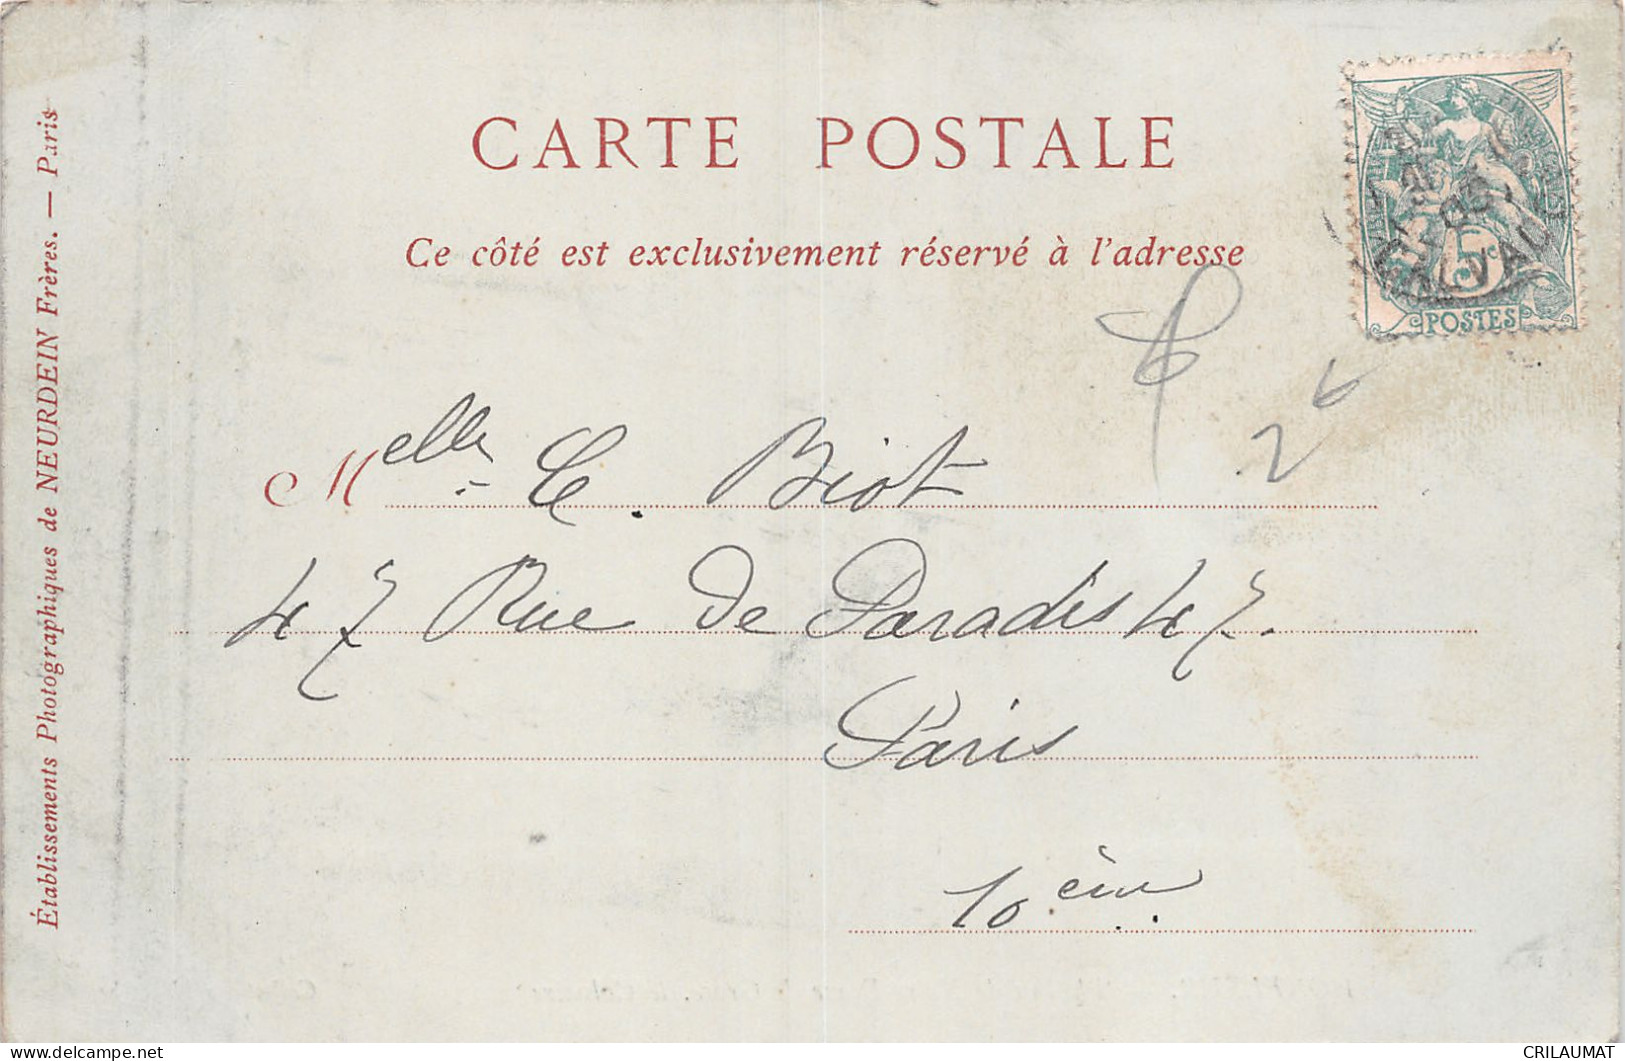 CARTE POSTALE
Ce côté est exclusivement réservé à l'adresse
Établissements Photographiques de NEURDEIN Frères. — Paris
POSTES
5c
Melle C. Biot
26
47 Rue de Paradis 47.
Paris
10ème
delcampe.net
CRILAUMAT